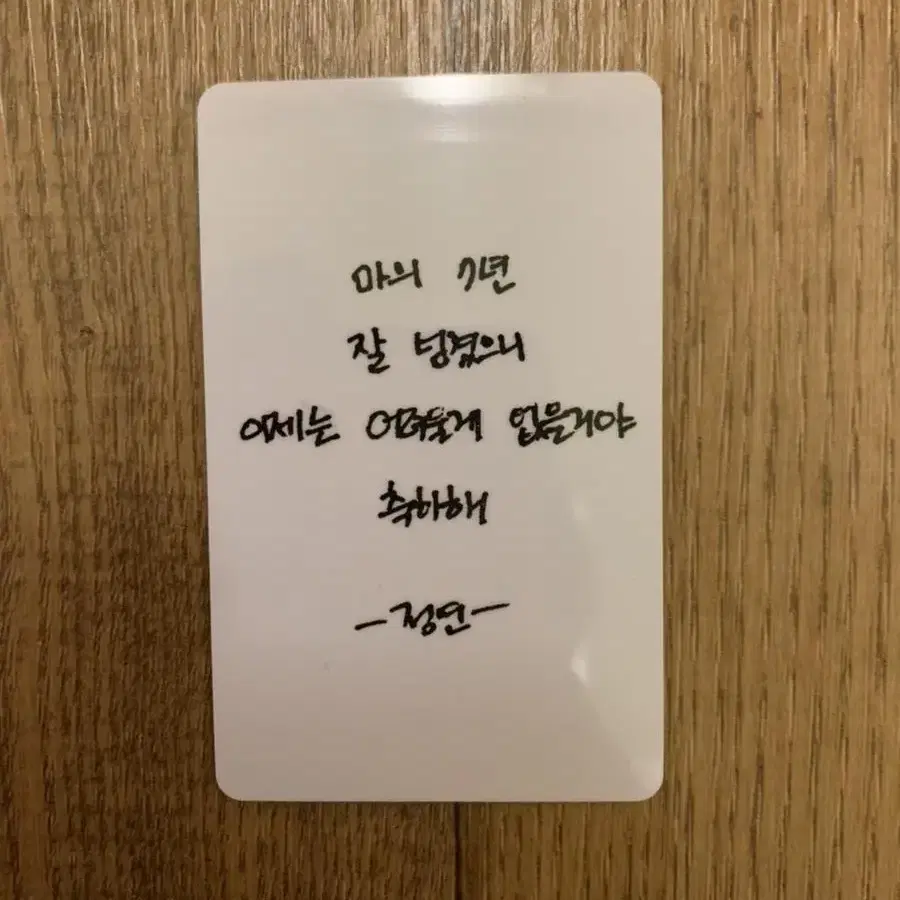 마의 7년
잘 넘겼으니
이제는 어려울게 없을거야
축하해
-정연-